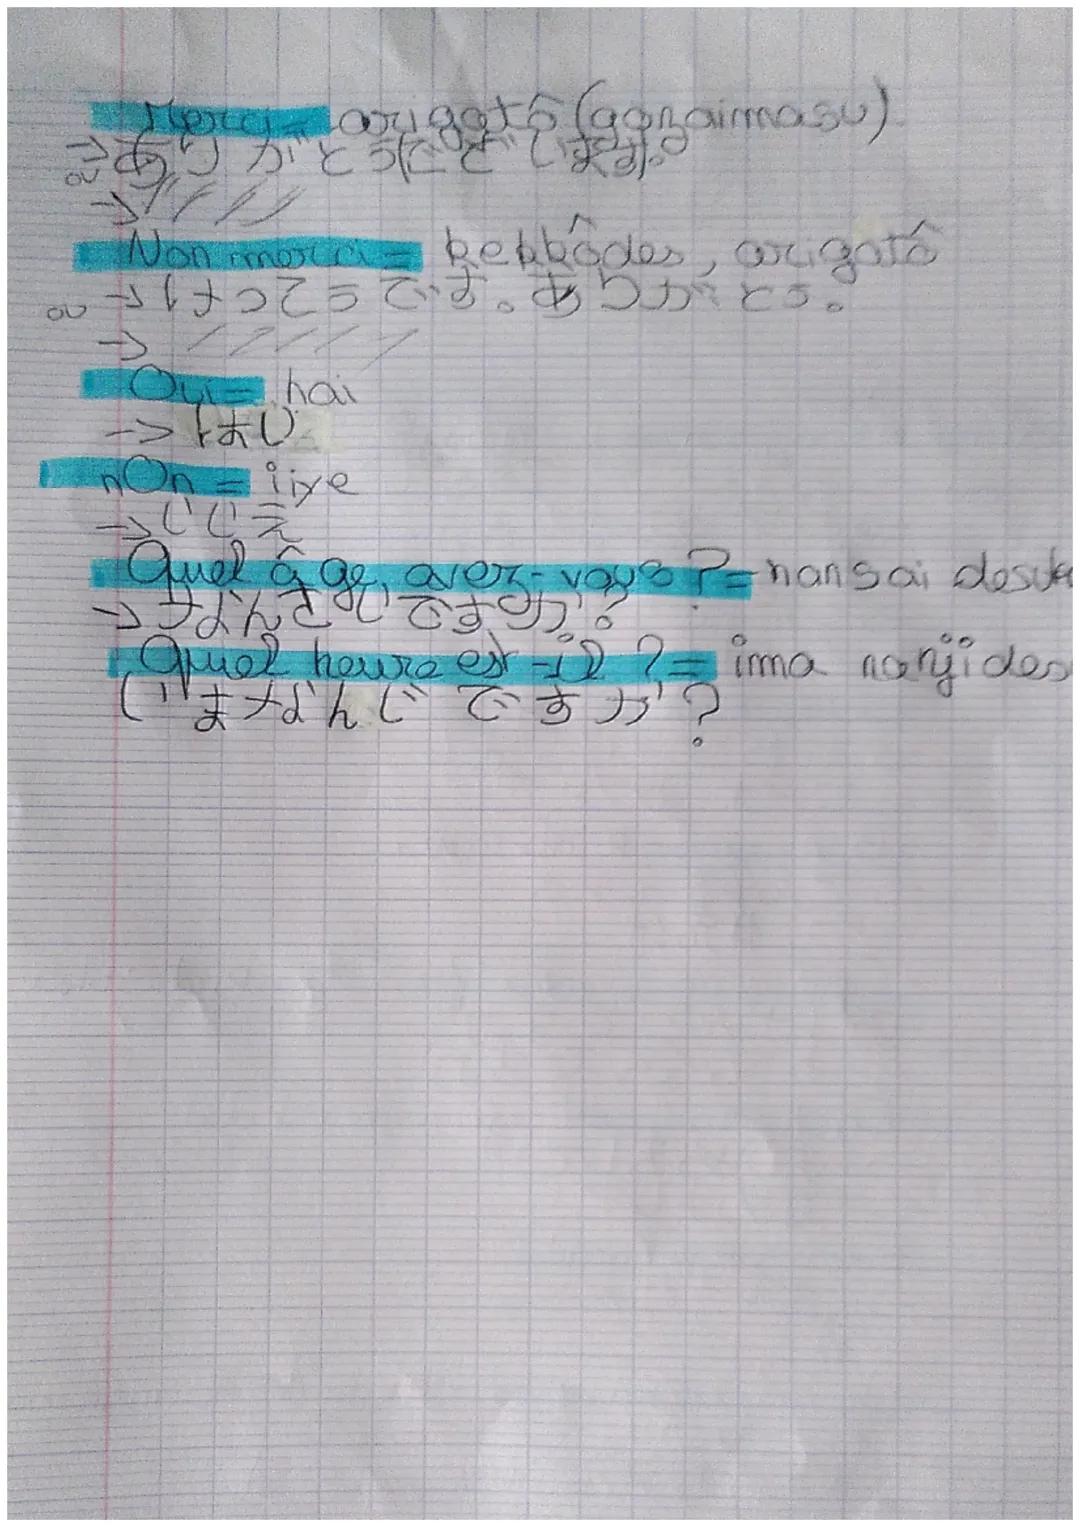 Merci = arigatô (gozaimasu)
→ ありがとうございます。
ou
→ / / / / /
Non merci = kekkôdes, arigatô
→ けっこうです。ありがとう。
ou
→ / / / / /
Oui = hai
→ はい
nOn = iiye
→ いいえ
Quel âge, avez-vous ? = nansai desuka
→ なんさいですか?
Quel heure est-il ? = ima nanjides
いまなんじですか?